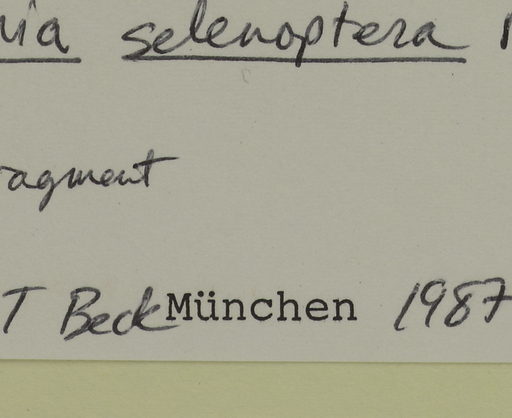 nia selenoptera
ragment
T Beck München 1987